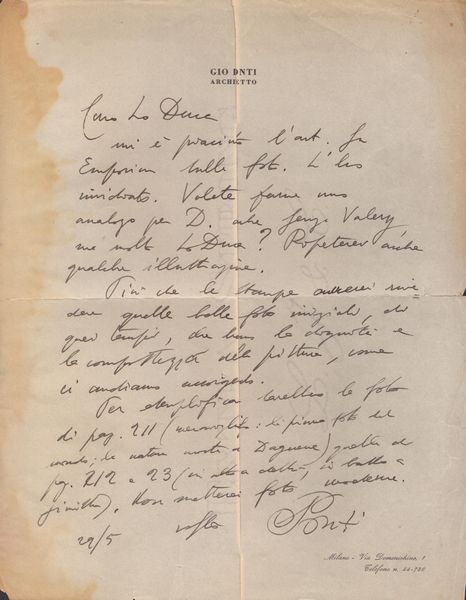 GIO DNTI
ARCHIETTO
Caro Lo Duca
mi è piaciuto l'art. su
Emporium sulle foto. L'ho
invidiato. Volete farne uno
analogo per D. che senza Valery,
ma molto Lo Duca? Ripeterei anche
qualche illustrazione.
Più che le stampe amerei rive
dere quelle belle foto iniziali, di
quei tempi, che hanno la dignità e
la compostezza della pittura, come
ci andiamo accorgendo.
Per esemplificare le foto
di pag. 211 (meravigliosa: la prima foto del
mondo; la natura morta di Daguerre) quelle di
pag. 212 e 23 (in alto a destra, in basso a
sinistra). Non metterei foto moderne.
29/5 Ponti
Milano - Via Domenichino, 1
Telefono n. 44-720